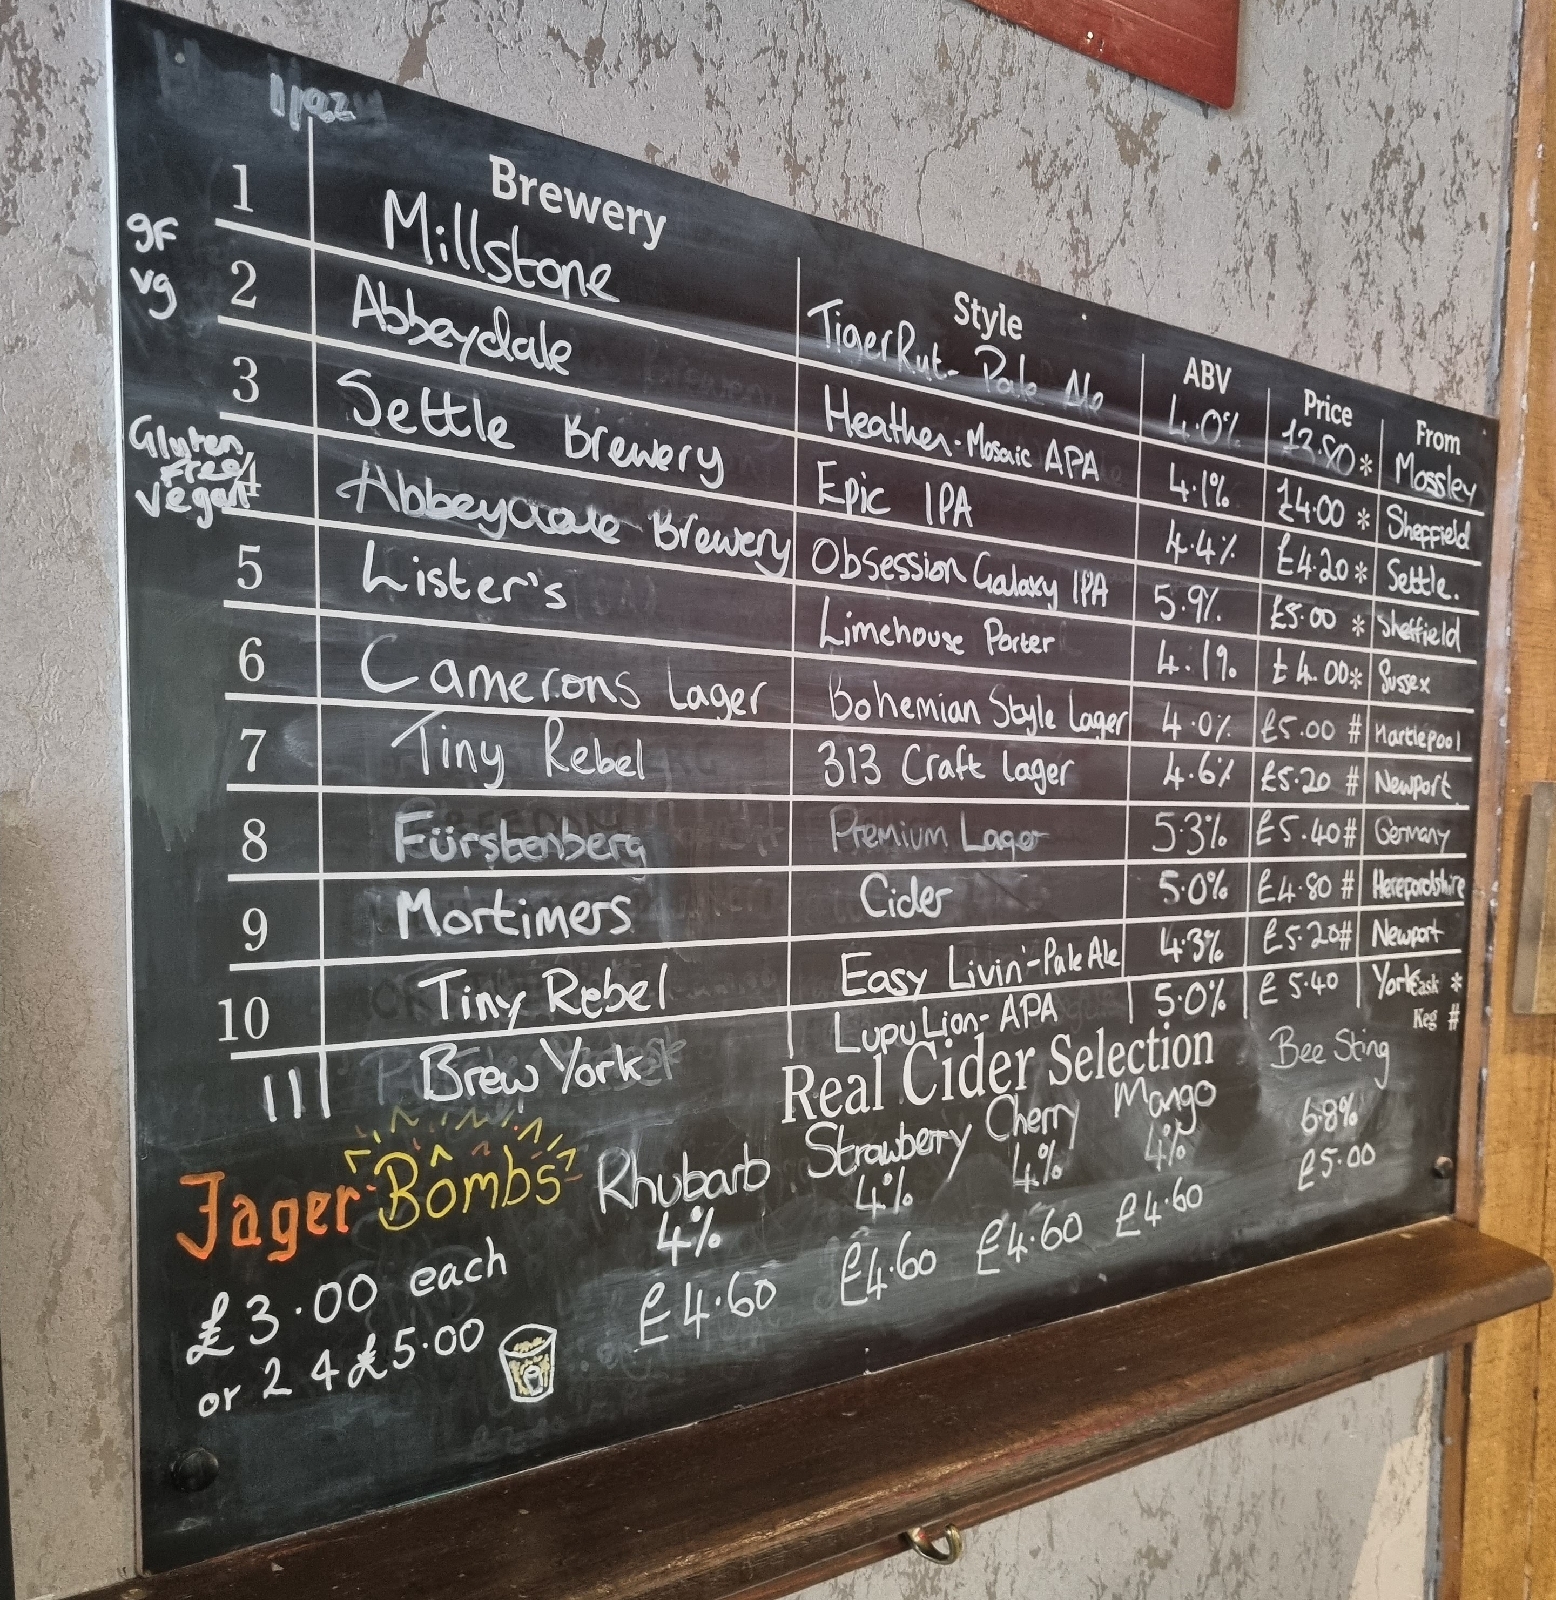 Brewery Style ABV Price From
1 Millstone TigerRut- Pale Ale 4.0% £3.80 * Mossley
gf vg 2 Abbeydale Heathen-Mosaic APA 4.1% £4.00 * Sheffield
3 Settle Brewery Epic IPA 4.4% £4.20 * Settle.
Gluten Free/ Vegan 4 Abbeydale Brewery Obsession Galaxy IPA 5.9% £5.00 * Sheffield
5 Lister's Limehouse Porter 4.1% £4.00 * Sussex
6 Camerons Lager Bohemian Style Lager 4.0% £5.00 # Hartlepool
7 Tiny Rebel 313 Craft Lager 4.6% £5.20 # Newport
8 Fürstenberg Premium Lager 5.3% £5.40 # Germany
9 Mortimers Cider 5.0% £4.80 # Herefordshire
10 Tiny Rebel Easy Livin'-Pale Ale 4.3% £5.20 # Newport
11 Brew York Lupu Lion- APA 5.0% £5.40 York
Cask *
Keg #
Real Cider Selection
Rhubarb Strawberry Cherry Mango Bee Sting
4% 4% 4% 4% 6.8%
£4.60 £4.60 £4.60 £4.60 £5.00
Jager Bombs
£3.00 each
or 2 4 £5.00